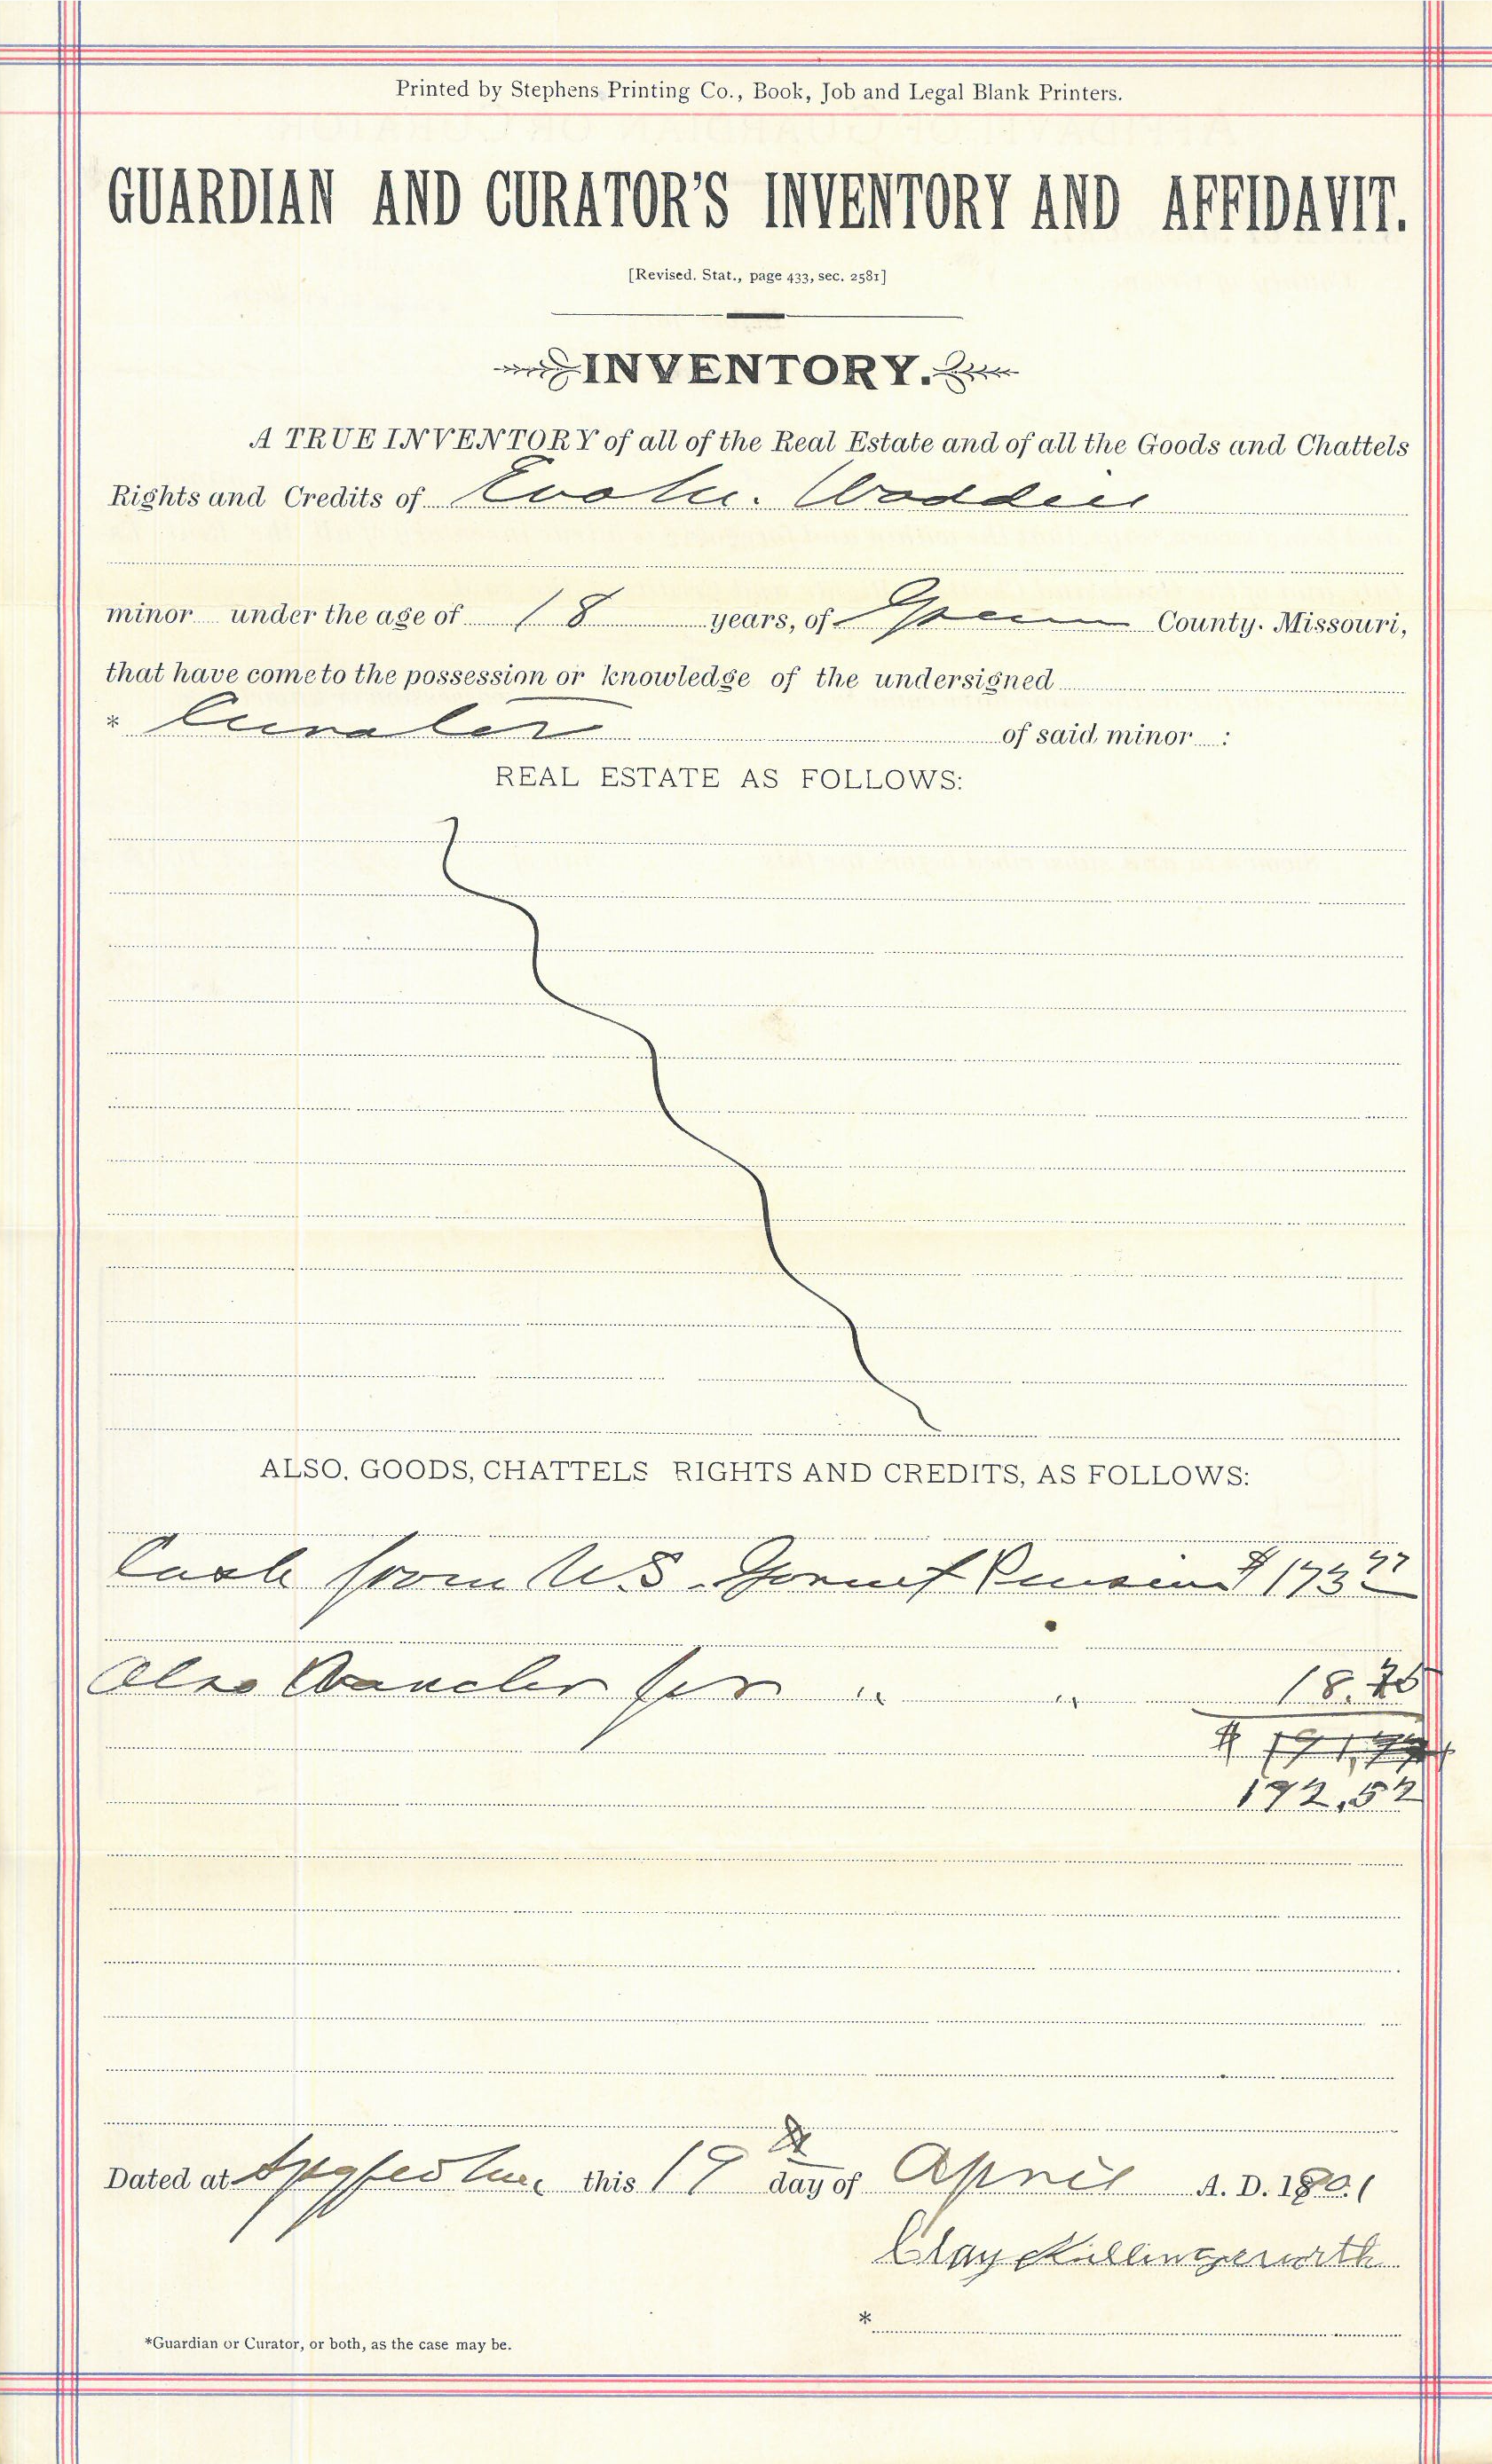 Printed by Stephens Printing Co., Book, Job and Legal Blank Printers.
GUARDIAN AND CURATOR'S INVENTORY AND AFFIDAVIT.
[Revised. Stat., page 433, sec. 2581]
INVENTORY.
A TRUE INVENTORY of all of the Real Estate and of all the Goods and Chattels
Rights and Credits of Eva M. Waddill
minor under the age of 18 years, of Green County. Missouri,
that have come to the possession or knowledge of the undersigned
* Curator of said minor :
REAL ESTATE AS FOLLOWS:
ALSO, GOODS, CHATTELS RIGHTS AND CREDITS, AS FOLLOWS:
Cash from U.S. Pension $ 173 77
Also Voucher for " " 18.75
$
192.52
Dated at this 19 day of April A. D. 1901
Clay Killingsworth
*
*Guardian or Curator, or both, as the case may be.